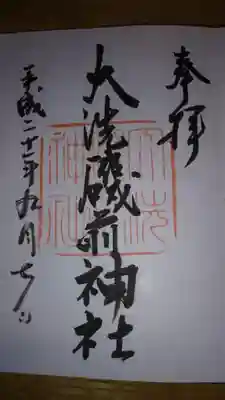 奉拝
大洗磯前神社
平成二十一年九月七日